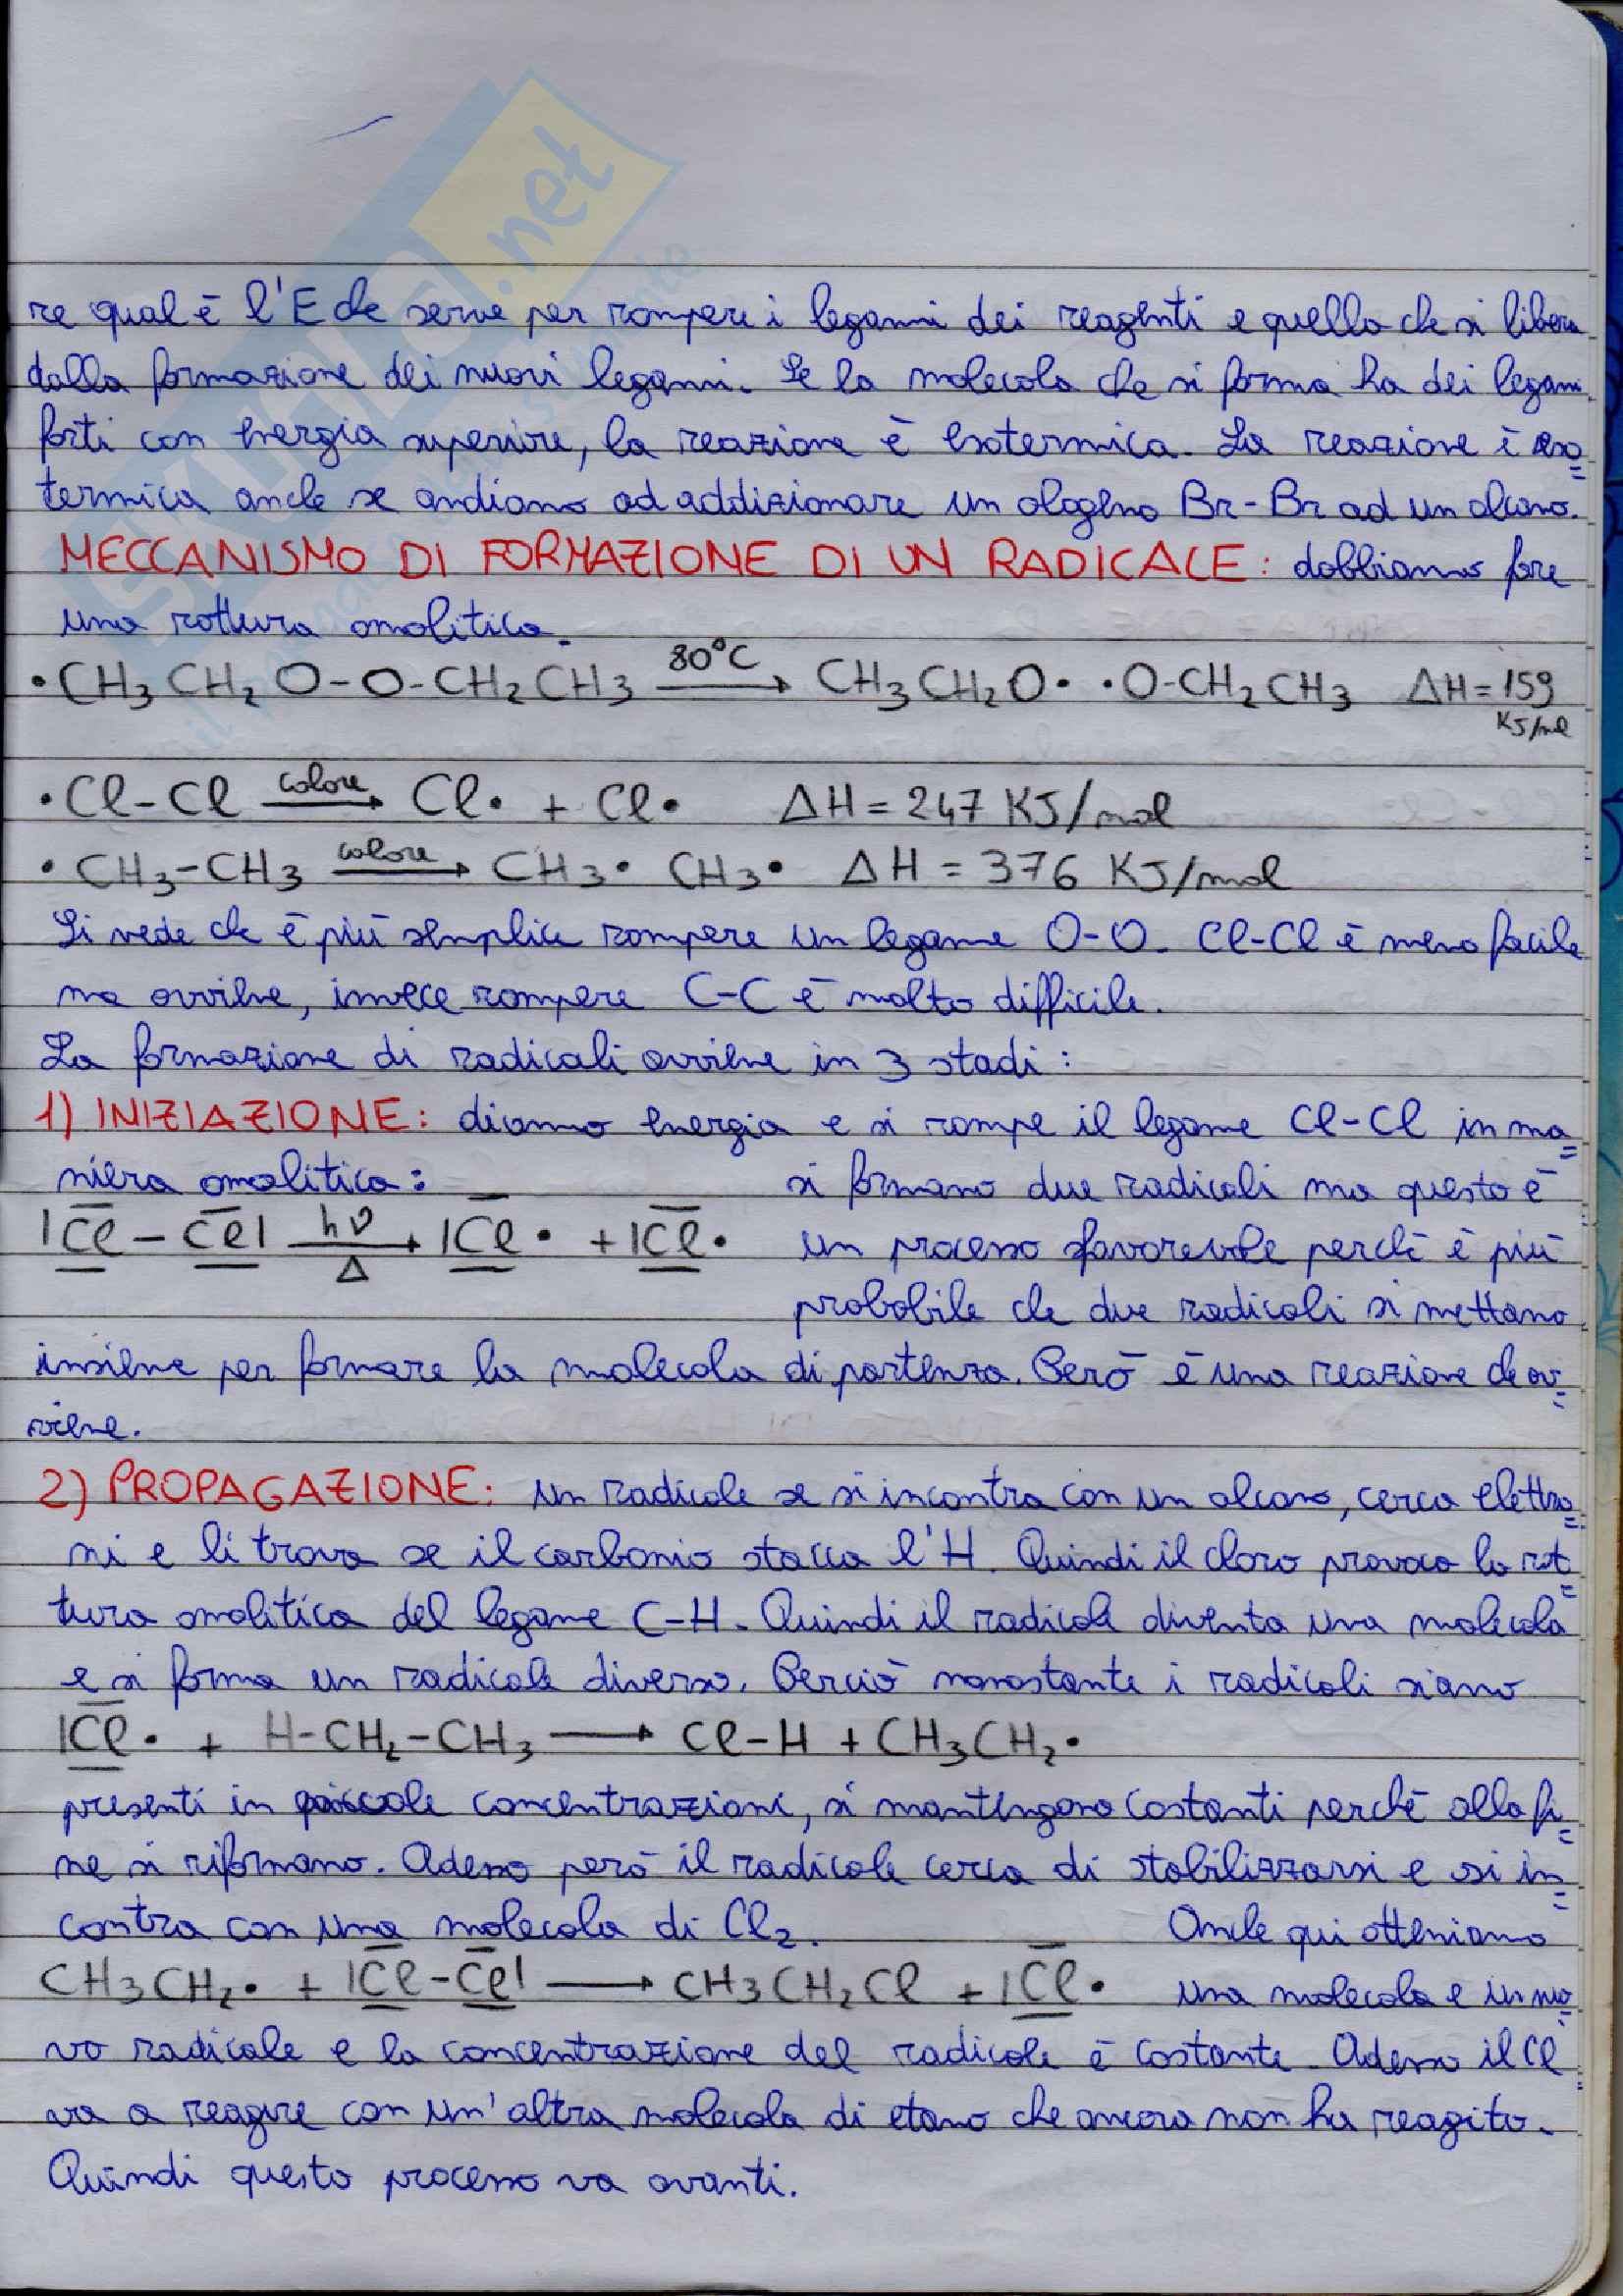 re qual è l'E che serve per rompere i legami dei reagenti e quello che si libera
dalla formazione dei nuovi legami. Se la molecola che si forma ha dei legami
forti con energia superiore, la reazione è esotermica. La reazione è eso=
termica anche se andiamo ad addizionare un alogeno Br-Br ad un alcano.
MECCANISMO DI FORMAZIONE DI UN RADICALE: dobbiamo fare
una rottura omolitica.
•CH3CH2O-O-CH2CH3 80°C → CH3CH2O• •O-CH2CH3 ΔH=159
KJ/mol
•Cl-Cl calore → Cl• + Cl• ΔH = 247 KJ/mol
•CH3-CH3 calore → CH3• CH3• ΔH = 376 KJ/mol
Si vede che è più semplice rompere un legame O-O. Cl-Cl è meno facile
ma avviene, invece rompere C-C è molto difficile.
La formazione di radicali avviene in 3 stadi:
1) INIZIAZIONE: diamo energia e si rompe il legame Cl-Cl in ma=
niera omolitica: si formano due radicali ma questo è
|Cl-Cl| hν → Δ |Cl• + |Cl• un processo sfavorevole perchè è più
probabile che due radicali si mettano
insieme per formare la molecola di partenza. Però è una reazione che av=
viene.
2) PROPAGAZIONE: un radicale se si incontra con un alcano, cerca elettro=
ni e li trova se il carbonio stacca l'H. Quindi il cloro provoca la rot=
tura omolitica del legame C-H. Quindi il radicale diventa una molecola
e si forma un radicale diverso. Perciò nonostante i radicali siano
|Cl• + H-CH2-CH3 → Cl-H + CH3CH2•
presenti in piccole concentrazioni, si mantengono costanti perchè alla fi=
ne si riformano. Adesso però il radicale cerca di stabilizzarsi e si in=
contra con una molecola di Cl2. Anche qui otteniamo
CH3CH2• + |Cl-Cl| → CH3CH2Cl + |Cl• una molecola e un nuo=
vo radicale e la concentrazione del radicale è costante. Adesso il Cl
va a reagire con un'altra molecola di etano che ancora non ha reagito.
Quindi questo processo va avanti.
SKUOLA.net